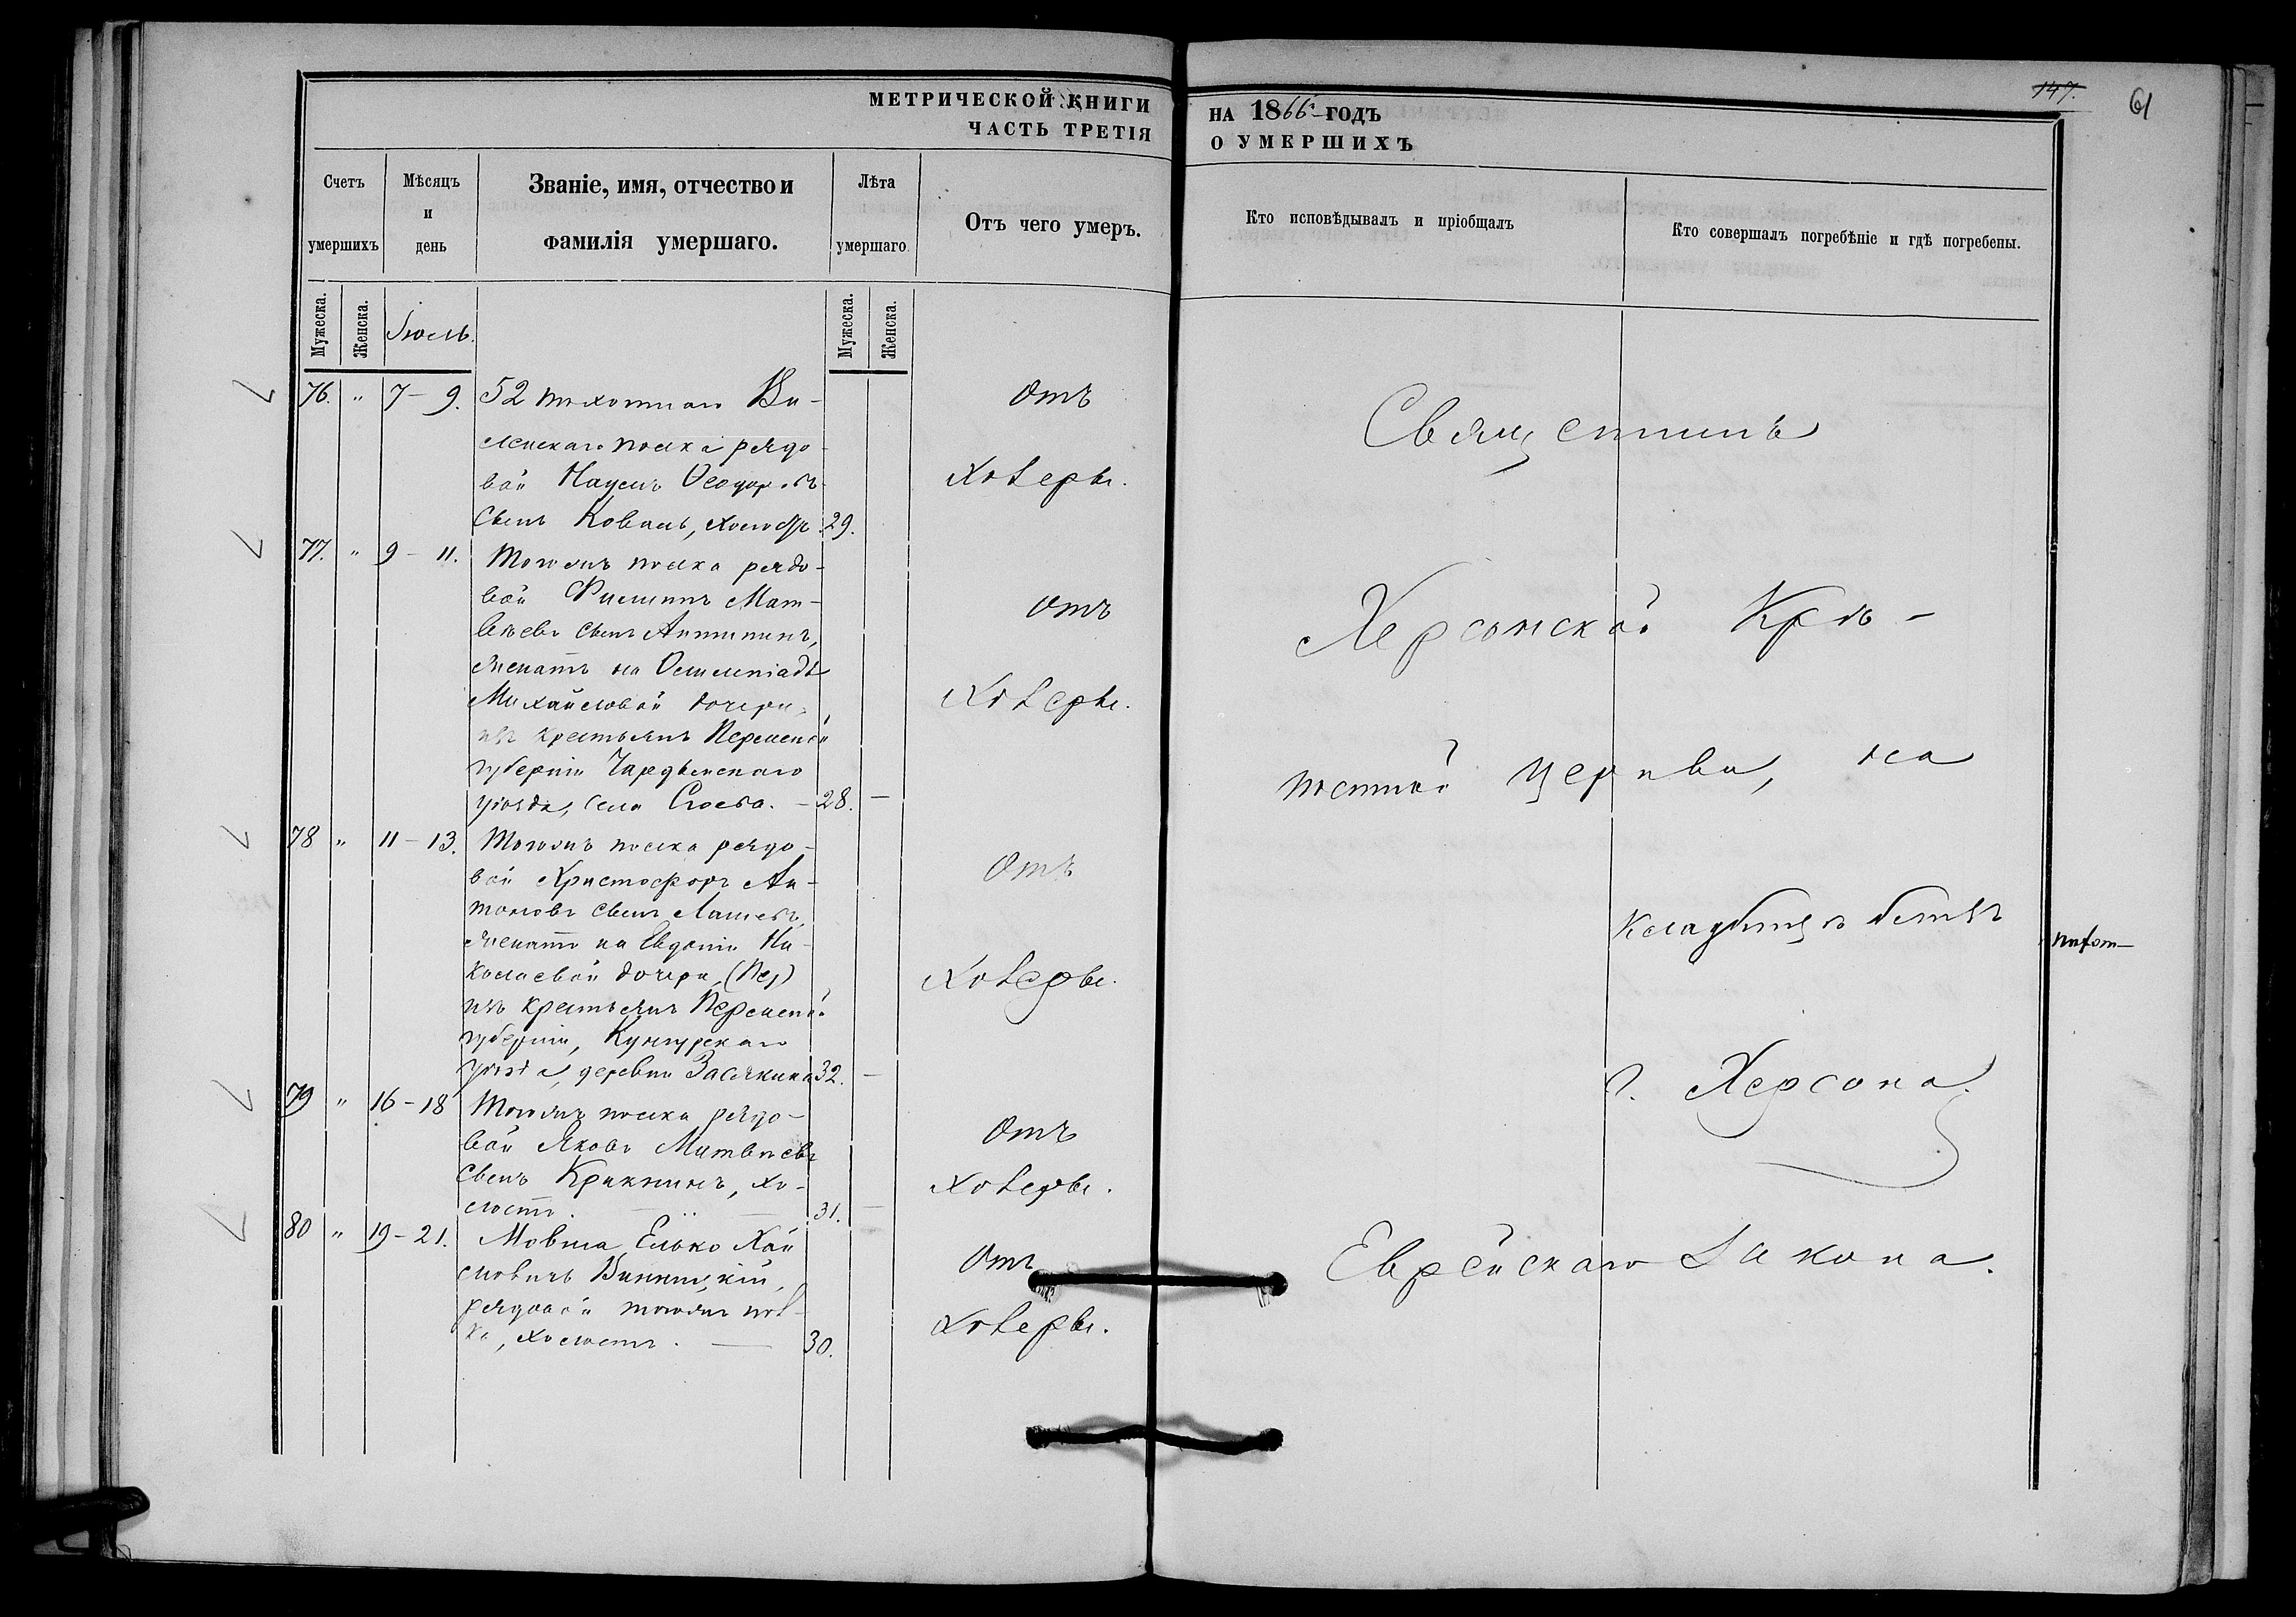 МЕТРИЧЕСКОЙ КНИГИ
ЧАСТЬ ТРЕТІЯ
НА 1866 ГОДЪ
О УМЕРШИХЪ
147.
61
Счетъ умершихъ
Мѣсяцъ и день
Званіе, имя, отчество и
фамилія умершаго.
Лѣта умершаго.
Отъ чего умеръ.
Кто исповѣдывалъ и пріобщалъ
Кто совершалъ погребѣніе и гдѣ погребены.
Мужеска.
Женска.
Іюль.
Мужеска.
Женска.
76. " 7–9. 52 пѣхотнаго Ви-
ленскаго полка рядо-
вой Наумъ Ѳеодоровъ
сынъ Коваль, холостъ. 29.
Отъ
холеры.
77. " 9–11. Тогожъ полка рядо-
вой Филиппъ Мат-
вѣевъ сынъ
женатъ на Олимпіадѣ
Михайловой дочери,
изъ крестьянъ Пермской
губерніи Чардынскаго
уѣзда, села 28. —
Отъ
холеры.
78 " 11–13. Тогожъ полка рядо-
вой Христофоръ Ан-
тоновъ сынъ
женатъ на Евдокіи Ни-
колаевой дочери, (Пер)
изъ крестьянъ Пермской
губерніи, Кунгурскаго
уѣзда, деревни Засякина 32. —
Отъ
холеры.
79 " 16–18 Тогожъ полка рядо-
вой Яковъ Матвѣевъ
сынъ Крикнинъ, хо-
лостъ. — 31. —
Отъ
холеры.
80 " 19–21. Мовша Елько Хаи
мовичъ Винницкій,
рядовой тогожъ пол-
ка, холостъ. — 30.
Отъ
холеры.
Священникъ
Херсонской Крѣ-
постной церкви, на
кладбищѣ
г. Херсона.
Еврейскаго Закона.